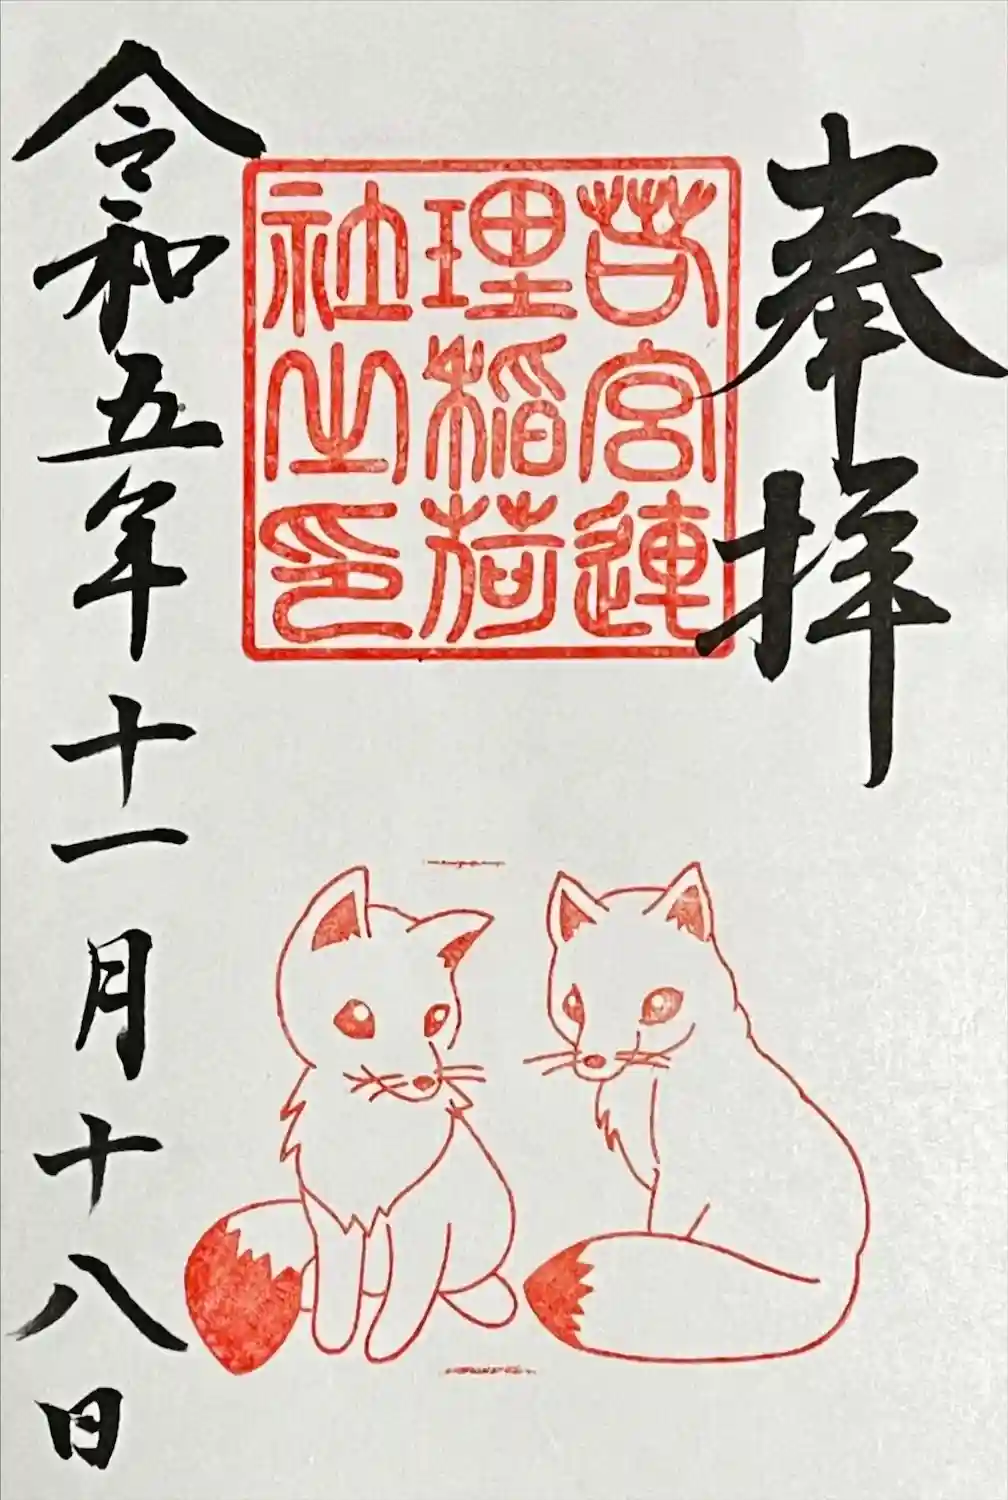 奉拝
若宮連
理稲荷
社之印
令和五年十一月十八日